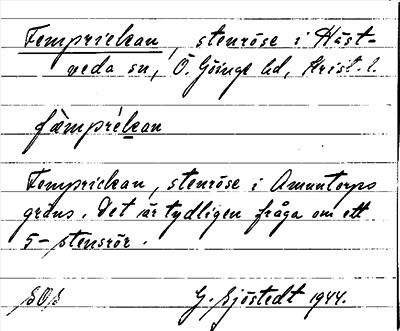 Femprickan, stenröse i Häst-
veda sn, Ö. Göinge hd, Krist. l.
fæmprékan
Femprickan, stenröse i Amuntorps
gräns. Det är tydligen fråga om ett
5-stensrör.
SOS G. Sjöstedt 1944.